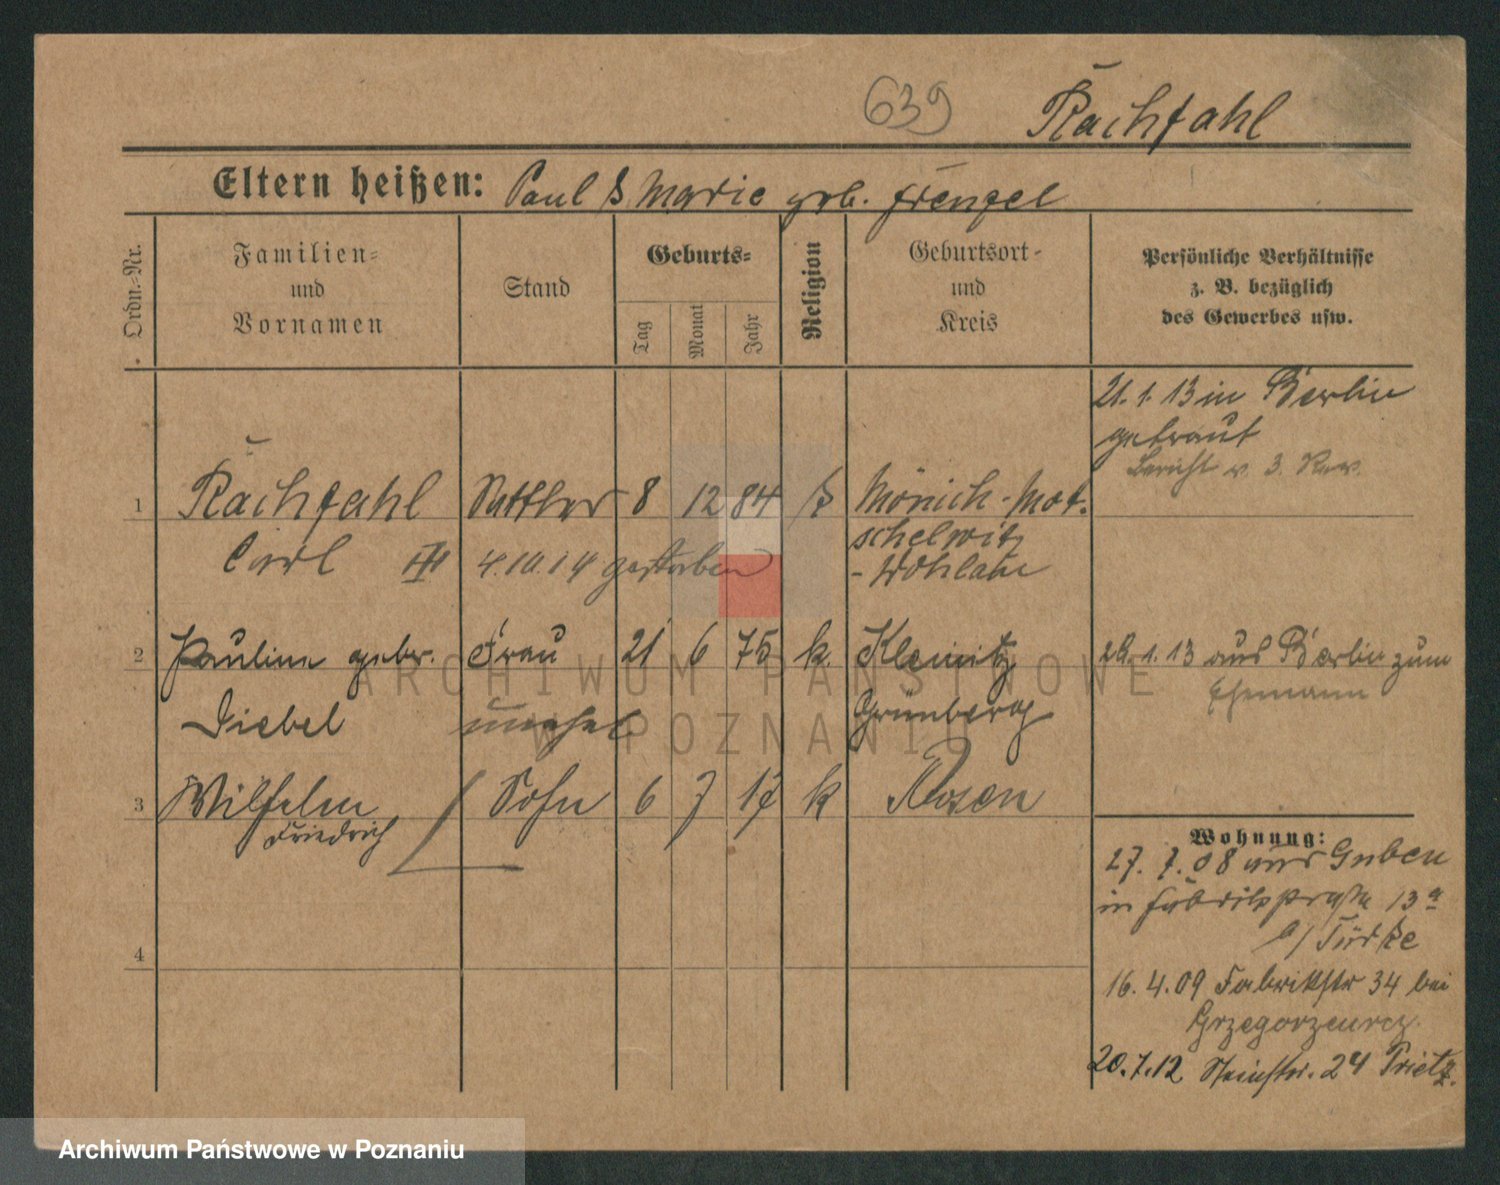 639 Rachfahl
Eltern heißen: Paul & Marie geb. Frenzel
Ordn.-Nr.
Familien-
und
Vornamen
Stand
Geburts-
Tag
Monat
Jahr
Religion
Geburtsort-
und
Kreis
Persönliche Verhältnisse
z. B. bezüglich
des Gewerbes usw.
21. 1. 13 in Berlin
getraut
Bericht v. 3. Rev.
1 Rachfahl Sattler 8 12 84 Mönich-Mot-
schelwitz
Carl III 4.10.14 gestorben - Wohlau
2 Pauline geber. Frau 21 6 75 k. Kleinitz 28. 1. 13 aus Berlin zum
Ehemann
Diebel unehel Grünberg
3 Wilhelm Sohn 6 7 17 k Posen
Friedrich
Wohnung:
27. 7. 08 aus Guben
in Fabrikstraße 13 a
b/ Türke
4
16. 4. 09 Fabrikstr 34 bei
20.7.12 Steinstr. 24 Prietz.
ARCHIWUM PAŃSTWOWE
W POZNANIU
Archiwum Państwowe w Poznaniu